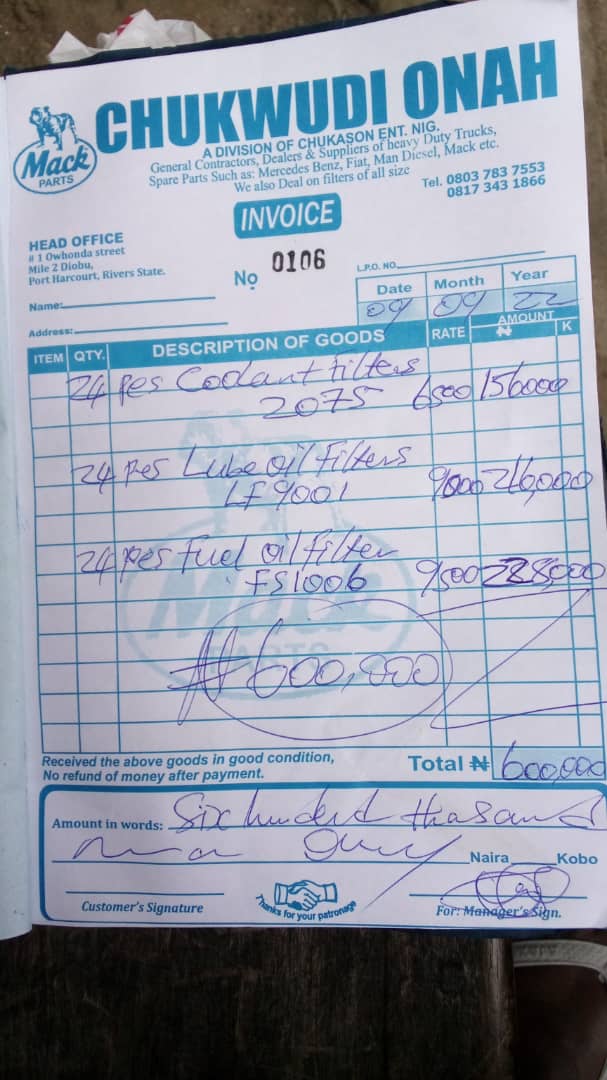 CHUKWUDI ONAH
A DIVISION OF CHUKASON ENT. NIG.
General Contractors, Dealers & Suppliers of heavy Duty Trucks,
Spare Parts Such as: Mercedes Benz, Fiat, Man Diesel, Mack etc.
We also Deal on filters of all size
Mack
PARTS
Tel. 0803 783 7553
0817 343 1866
INVOICE
HEAD OFFICE
# 1 Owhonda street
Mile 2 Diobu,
Port Harcourt, Rivers State.
No 0106
L.P.O. NO.
Name:
Address:
Date Month Year
09 09 22
ITEM QTY. DESCRIPTION OF GOODS RATE AMOUNT ₦ K
24 pcs Coolant Filters
2075 6500 156000
24 pcs Lube oil Filters
LF9001 9000 216,000
24 pcs Fuel oil filter
FS1006 9500 228,000
Mack
PARTS
₦600,000
Received the above goods in good condition,
No refund of money after payment.
Total ₦ 600,000
Amount in words: Six hundred thasand
naira only Naira Kobo
Customer's Signature
Thanks for your patronage
For: Manager's Sign.